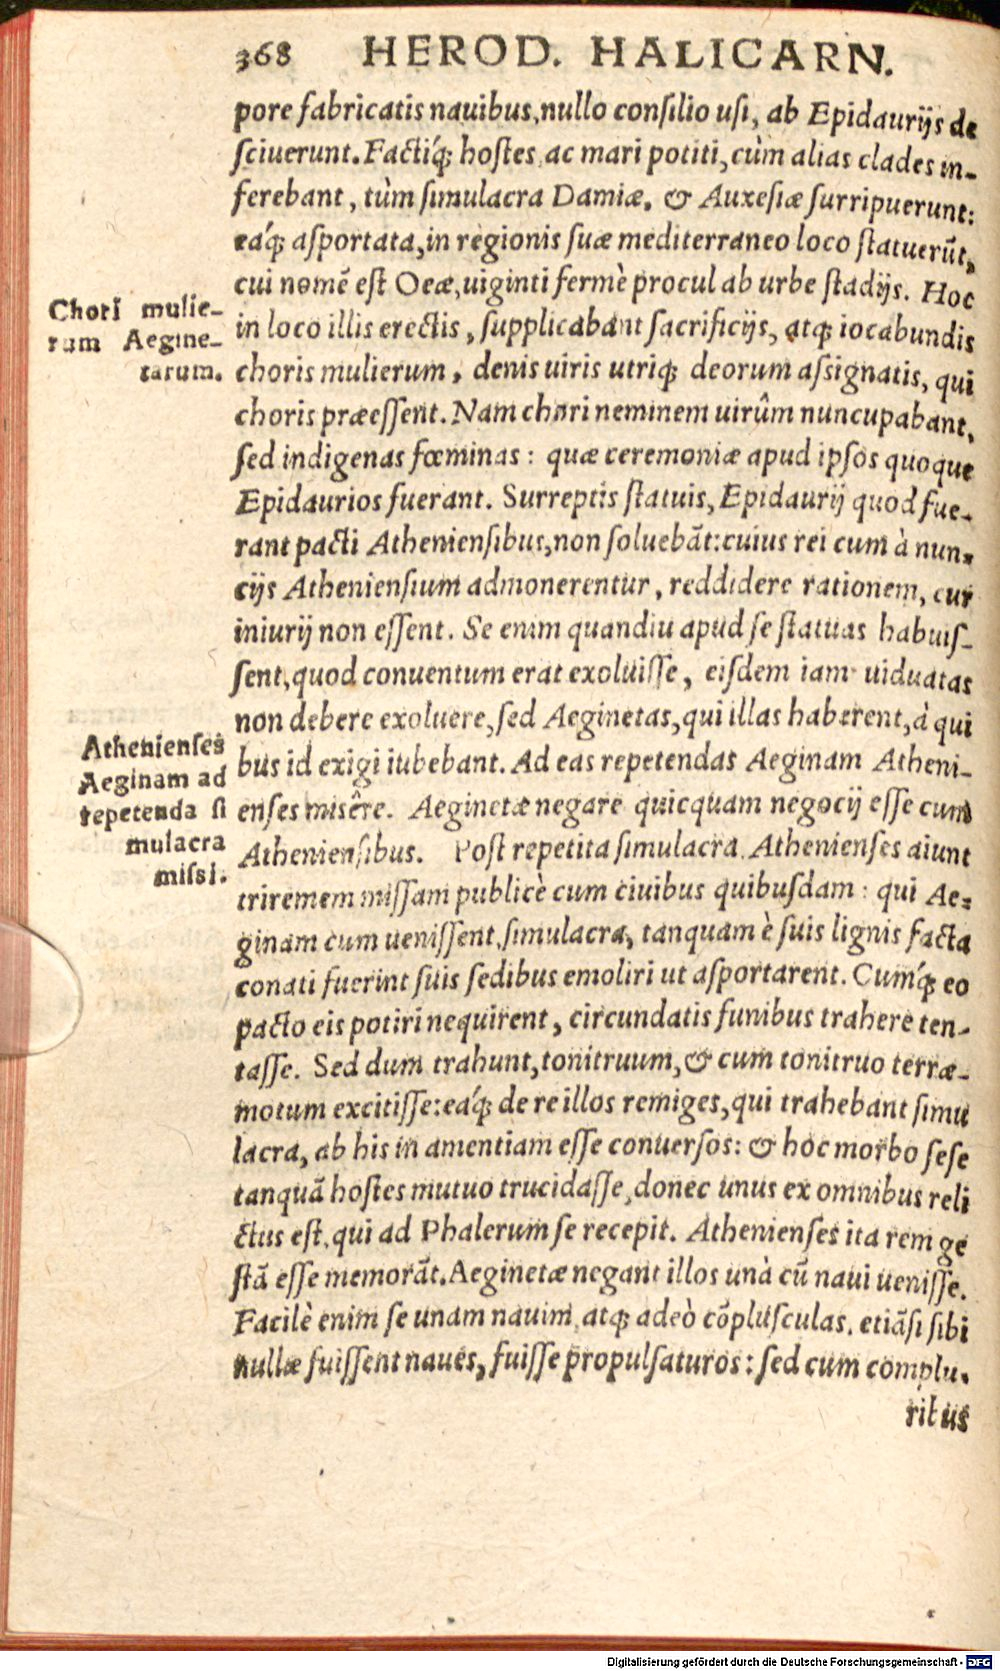 368 HEROD. HALICARN.
pore fabricatis nauibus, nullo conſilio uſi, ab Epidaurijs de
ſciuerunt. Factiq́; hoſtes ac mari potiti, cùm alias clades in-
ferebant, tùm ſimulacra Damiæ, & Auxeſiæ ſurripuerunt:
eáq; aſportata, in regionis ſuæ mediterraneo loco ſtatuerũt,
cui nomẽ eſt Oeæ, uiginti fermè procul ab urbe ſtadijs. Hoc
Chori mulie-
rum Aegine-
tarum.
in loco illis erectis, ſupplicabant ſacrificijs, atq; iocabundis
choris mulierum, denis uiris utriq; deorum aſsignatis, qui
choris præeſſent. Nam chori neminem uirûm nuncupabant,
ſed indigenas fœminas: quæ ceremoniæ apud ipſos quoque
Epidaurios fuerant. Surreptis ſtatuis, Epidaurij quod fue-
rant pacti Athenienſibus, non ſoluebãt: cuius rei cum à nun-
cijs Athenienſium admonerentur, reddidere rationem, cur
iniurij non eſſent. Se enim quandiu apud ſe ſtatuas habuiſ-
ſent, quod conuentum erat exoluiſſe, eiſdem iam uiduatas
non debere exoluere, ſed Aeginetas, qui illas haberent, à qui
Athenienſes
Aeginam ad
repetenda ſi
mulacra
miſsi.
bus id exigi iubebant. Ad eas repetendas Aeginam Atheni-
enſes misêre. Aeginetæ negare quicquam negocij eſſe cum
Athenienſibus. Poſt repetita ſimulacra, Athenienſes aiunt
triremem miſſam publicè cum ciuibus quibuſdam: qui Ae-
ginam cum ueniſſent, ſimulacra, tanquam è ſuis lignis facta
conati fuerint ſuis ſedibus emoliri ut aſportarent. Cumq́; eo
pacto eis potiri nequirent, circundatis funibus trahere ten-
taſſe. Sed dum trahunt, tonitruum, & cum tonitruo terræ-
motum excitiſſe: eáq; de re illos remiges, qui trahebant ſimu
lacra, ab his in amentiam eſſe conuerſos: & hoc morbo ſeſe
tanquã hoſtes mutuo trucidaſſe, donec unus ex omnibus reli
ctus eſt, qui ad Phalerum ſe recepit. Athenienſes ita rem ge
ſtã eſſe memorãt. Aeginetæ negant illos unà cũ naui ueniſſe.
Facilè enim ſe unam nauim, atq; adeò cõpluſculas, etiãſi ſibi
nullæ fuiſſent naues, fuiſſe propulſaturos: ſed cum complu-
ribus
Digitalisierung gefördert durch die Deutsche Forschungsgemeinschaft - DFG